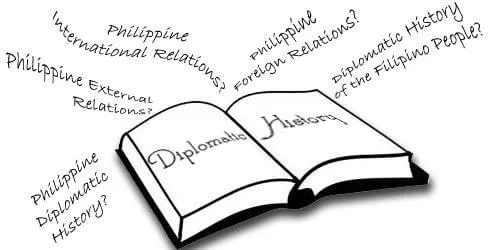 Philippine
International Relations?
Philippine
Foreign Relations?
Diplomatic History
of the Filipino People?
Philippine External
Relations?
Diplomatic History
Philippine
Diplomatic
History?